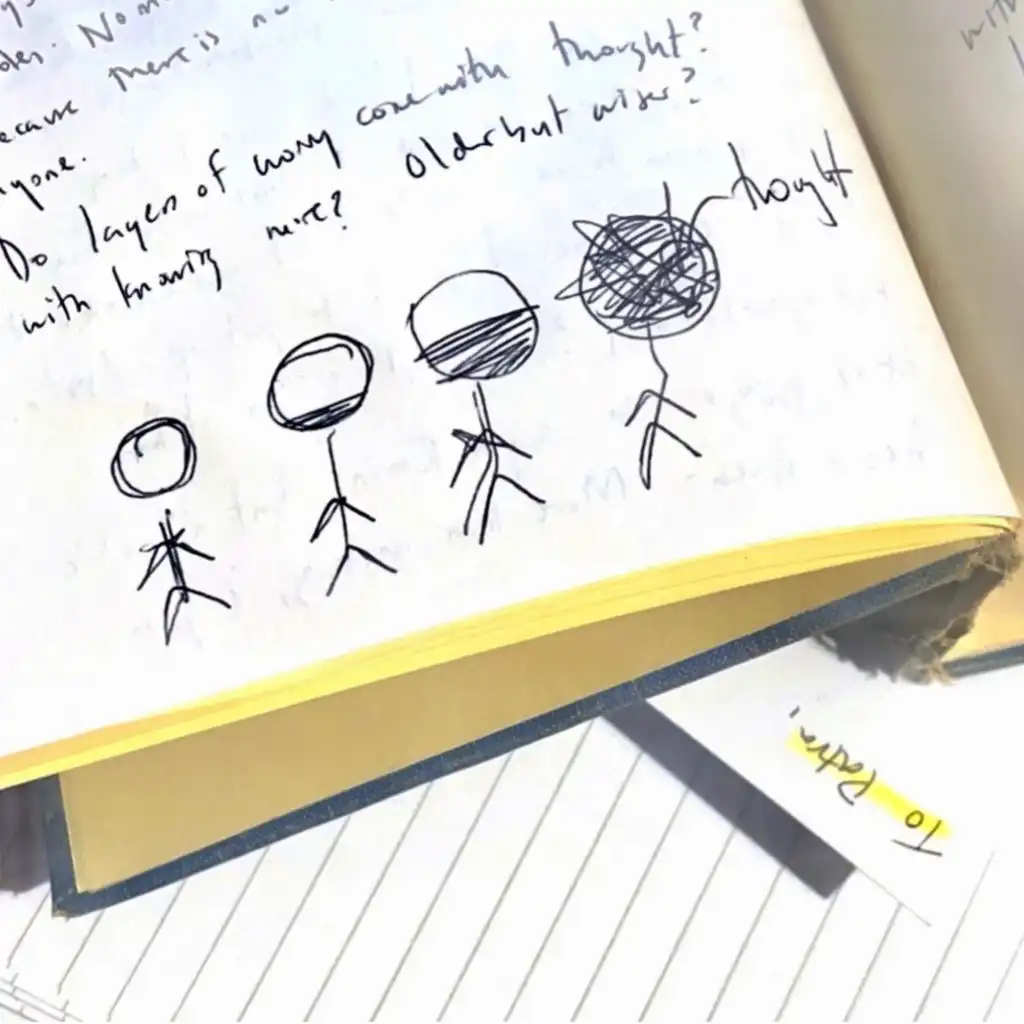 because there is no
anyone.
Do layers of worry come with thought?
with knowing more? Older but wiser?
thought
with
To